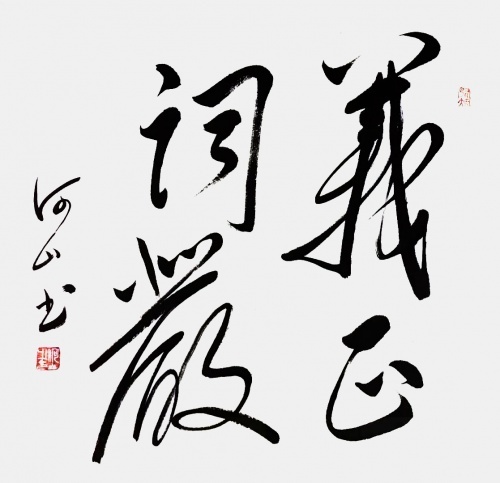 義正
詞嚴
何山書